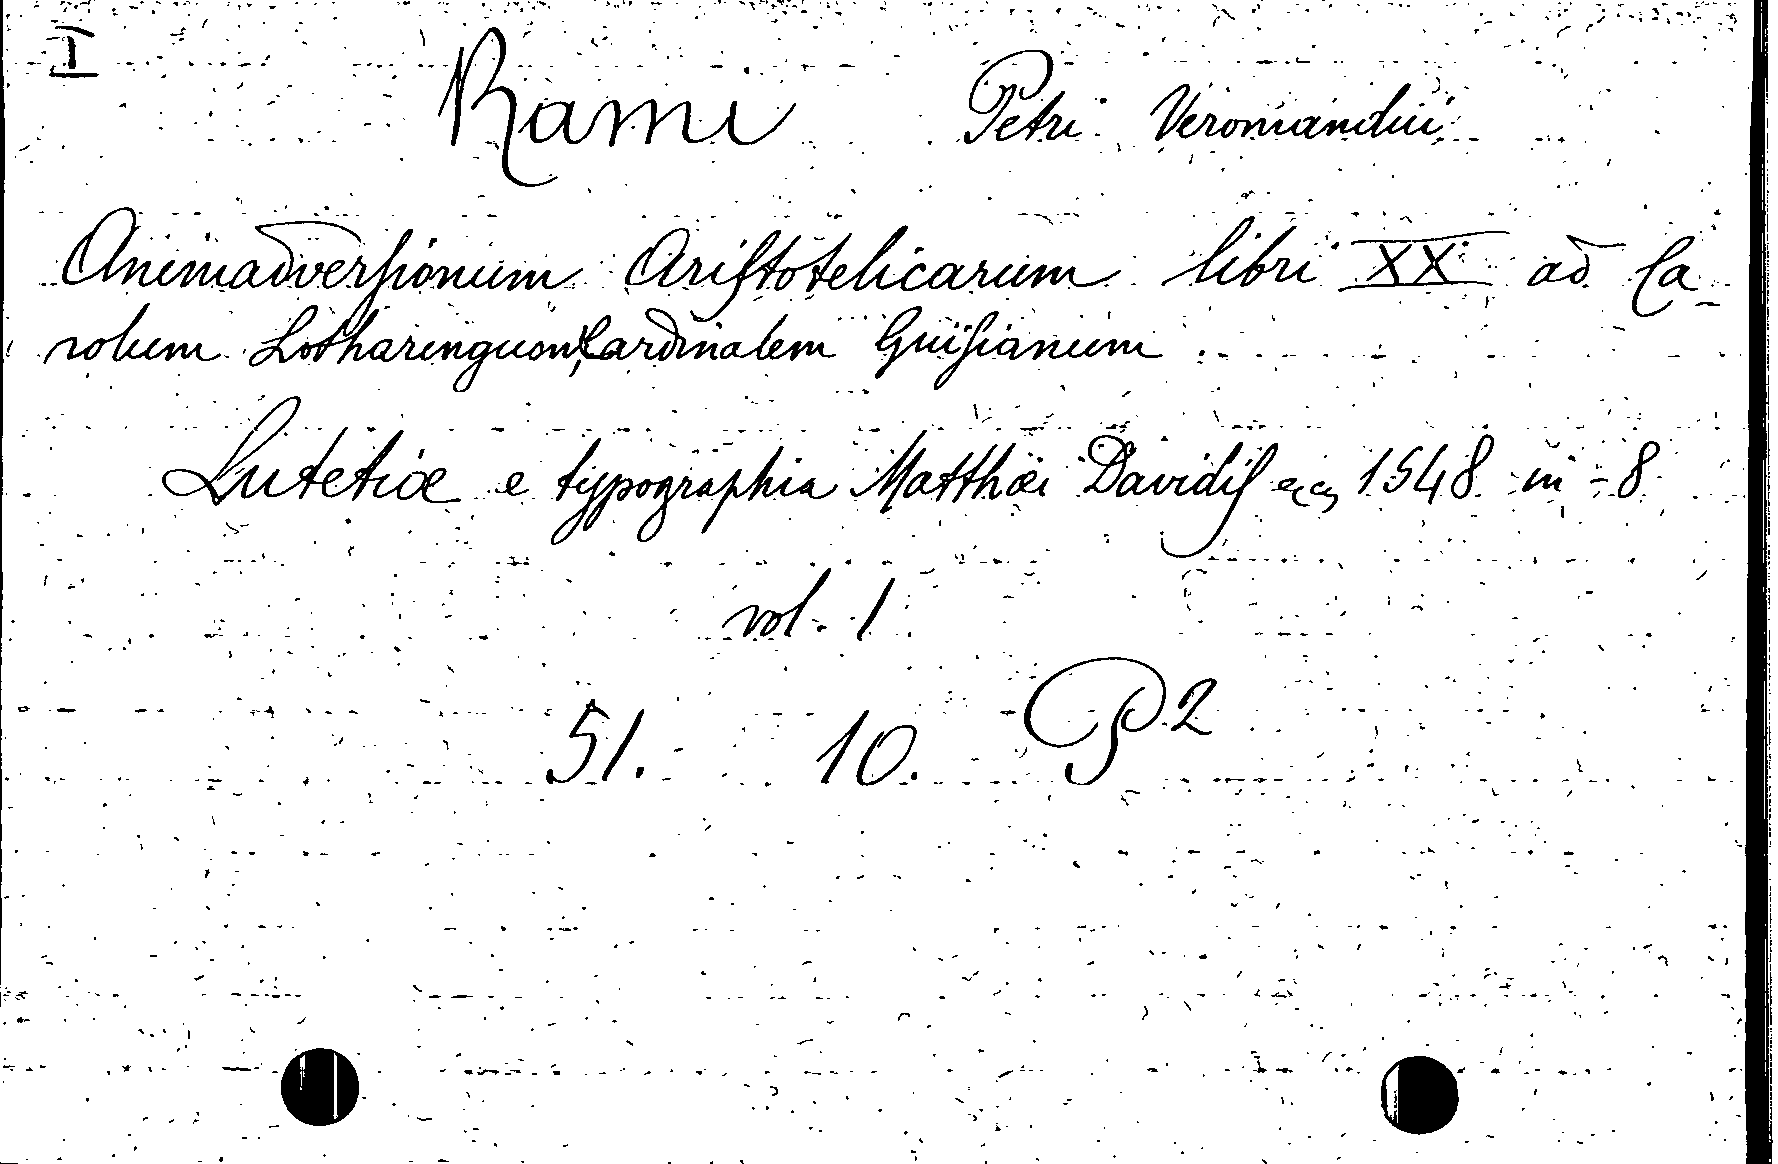 I
Rami Petri Veromandui
Animadversionum Aristotelicarum libri XX ad Ca-
rolum Lotharenguon, Cardinalem Guisianum
Lutetiæ e typographia Matthæi Davidis 1548 in-8
vol. 1
51. 10. P2